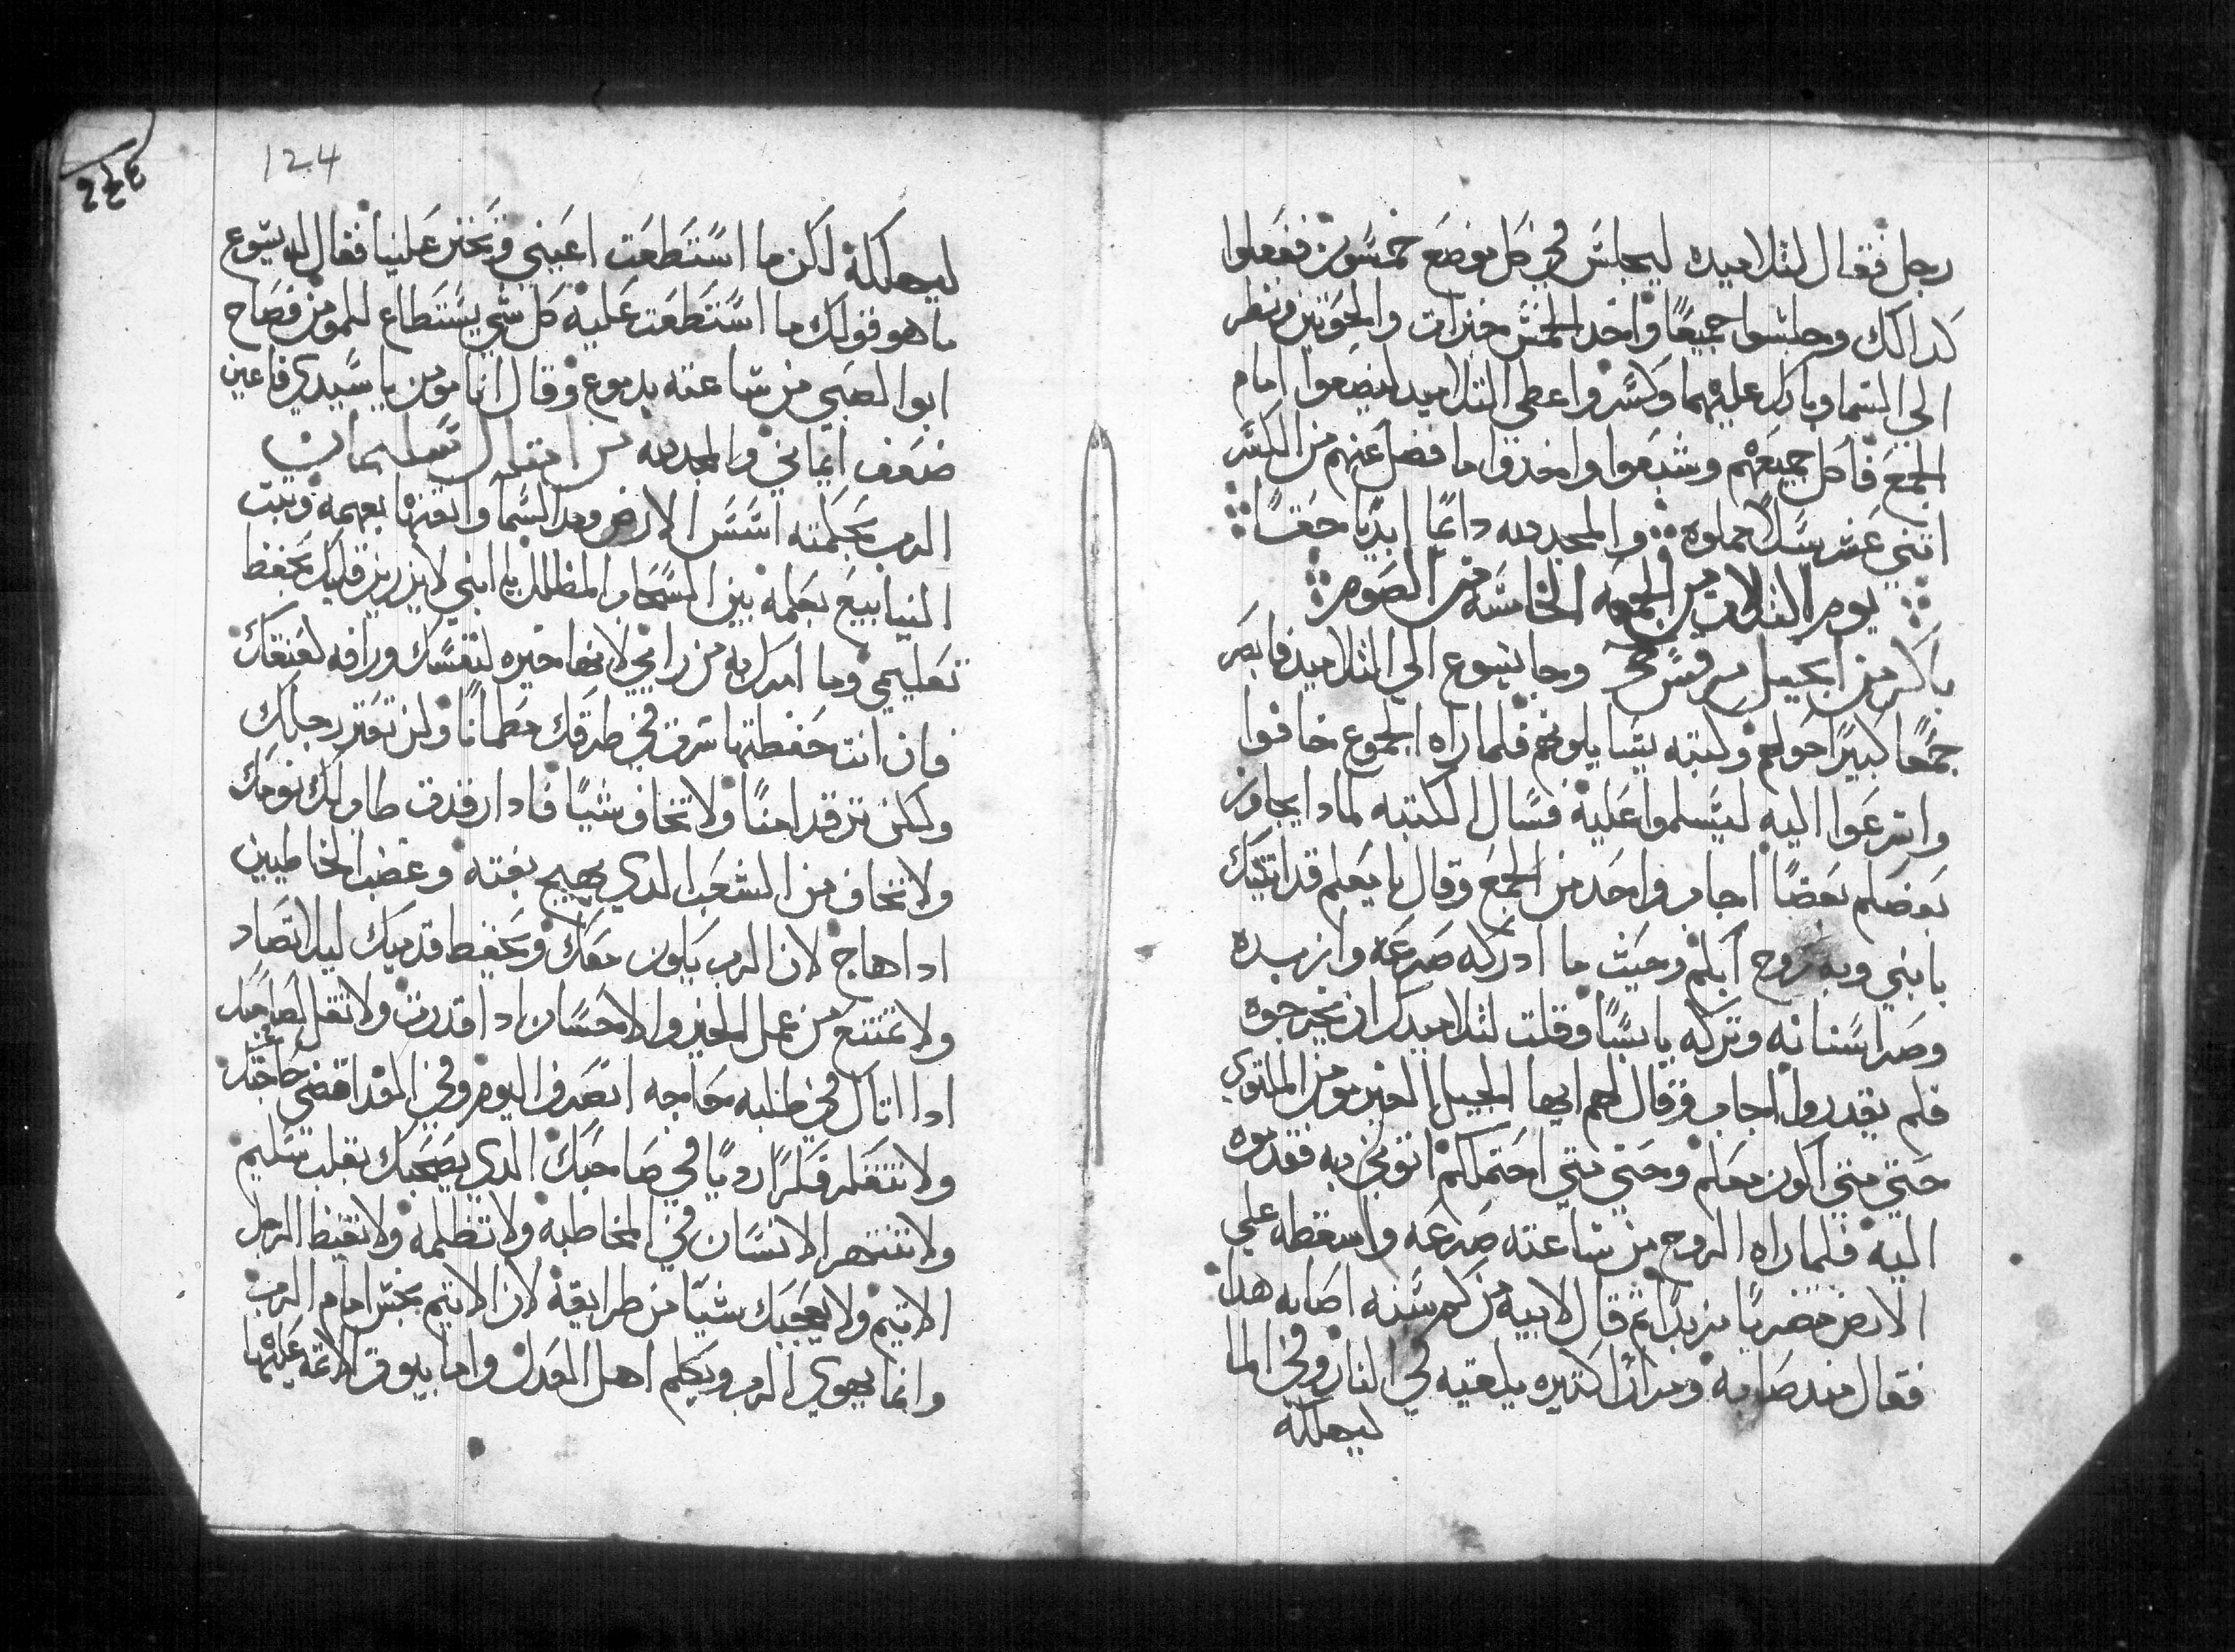 رجل فقال لتلاميده ليجلس في كل موضع خمسون ففعلوا
كدالك وجلسوا جميعًا واخد الخمس خبزات والحوتين ونظر
الي السما وبارك عليهما وكسر واعطي التلاميد ليضعوا امام
الجمع فاكل جميعهم وشبعوا واخدوا ما فضل عنهم من الكسر
اتني عشر سلاً مملوه والمجد لله دايمًا ابديًا حقًا
يوم التلات من الجمعه الخامسه من الصوم
باكر من انجيل مرقس وجا يسوع الي التلاميد فابصر
جمعًا كبيرًا حولهم وكتبه يسايلونهم فلما راه الجموع خافوا
واسرعوا اليه ليسلموا عليه فسال الكتبه لمادا يجاوز
بعضكم بعضًا اجاب واحد من الجمع وقال يا معلم قد اتيتك
بابني وبه روح ابكم وحيث ما ادركه صرعه وازبده
وصر اسنانه وتركه يابسًا وقلت لتلاميدك ان يخرجوه
فلم يقدروا اجاب وقال لهم ايها الجيل الغير مومن الملتوي
حتي متي اكون معكم وحتي متي احتملكم اتوني به فقدموه
اليه فلما راه الروح من ساعته صرعه واسقطه علي
الارض مضربًا مزبدًا تم قال لابيه من كم سنه اصابه هدا
فقال مند صباه ومرارًا كتيره يلقيه في النار وفي الما
ليهلكه
124
ليهلكه لكن ما استطعت اعيني وتحنن علينا فقال له يسوع
ما هو قولك ما استطعت عليه كل شي يستطاع للمومن فصاح
ابوا الصبي من ساعته بدموع وقال انا مومن يا سيدي فاعين
ضعف ايماني والمجد لله من امتال سليمان
الرب بحكمته اسس الارض ومد السما واتقنها بفهمه وتبت
الينابيع بحكمه بين السحاب المظلل يا ابني لا يزيغ قلبك بحفظ
تعليمي وما امرك به من رايي لانها خيره لنفسك ورافه لعنقك
فان انت حفظتها سرت في طرقك مطمانًا ولن تعتر رجلك
ولكن ترقد امنًا ولا تخاف شيًا فادا رقدت طاب لك نومك
ولا تخاف من الشغب الدي يهيج بغته وغضب الخاطيين
ادا هاج لان الرب يكون معك ويحفظ قدميك ليلا تصاد
ولا تمتنع من عمل الخير والاحسان ادا قدرت ولا تقل لصاحبك
ادا اتاك في طلبه حاجه انصرف اليوم وفي الغد اقضي حاجتك
ولا تتفكر فكرًا رديًا في صاحبك الدي يصحبك بقلب سليم
ولا تنتهر الانسان في المخاطبه ولا تظلمه ولا تغيظ الرجل
الاتيم ولا يعجبك شيًا من طرايقه لان الاتيم نجس امام الرب
وانما يهوي الرب ويكلم اهل العدل واما بيوت الاتمه عليها